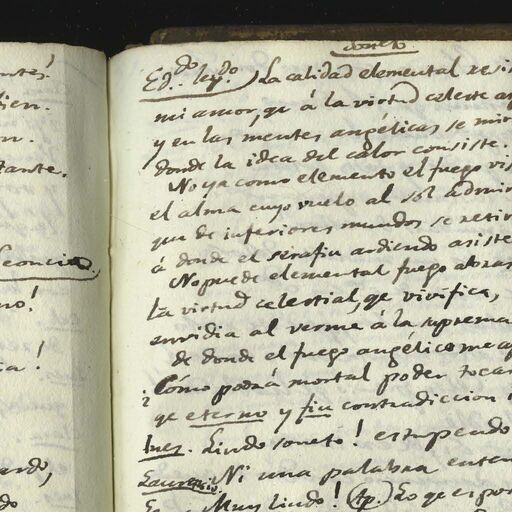 antes!
ien.
on.
tante.
Leoncia.
no!
ia!
ardo,
do
soneto
Edo. leydo.) La calidad elemental resi
mi amor, qe á la virtud celeste as
y en las mentes angélicas se mir
donde la idea del calor consiste.
No ya como elemento el fuego vis
el alma cuyo vuelo al sol admir
que de inferiores mundos se retir
á donde el serafin ardiendo asiste
No puede elemental fuego abras
La virtud celestial, qe vivifica,
envidia al verme á la suprema
de donde el fuego angélico me ap
¿Cómo podrá mortal poder tocar
qe eterno y fin contradiccion i
Ines. Lindo soneto! estupendo
Laurencio. Ni una palabra enten
Muy lindo! (ap.) Lo qe es por